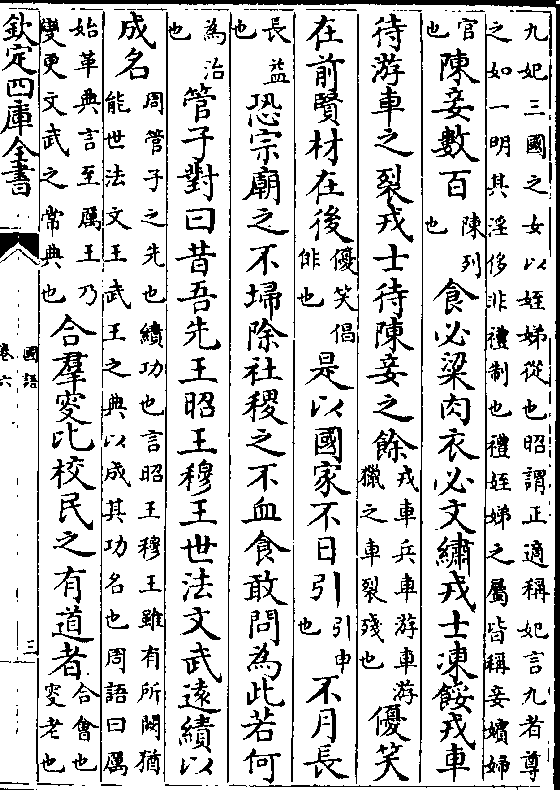 九妃三國之女以姪娣從也昭謂正適稱妃言九者尊
之如一明其淫侈非禮制也禮姪娣之屬皆稱妾嬪婦
官也陳妾數百陳列也食必粱肉衣必文繡戎士凍餒戎車
待游車之裂戎士待陳妾之餘戎車兵車游車游獵之車裂殘也優笑
在前賢材在後優笑倡俳也是以國家不日引引申也不月長
長益也恐宗廟之不埽除社稷之不血食敢問為此若何
為治也管子對曰昔吾先王昭王穆王世法文武遠績以
成名周管子之先也績功也言昭王穆王雖有所闕猶能世法文王武王之典以成其功名也周語曰厲
始革典言至厲王乃變更文武之常典也合羣叟比校民之有道者合會也叟老也
欽定四庫全書
國語
卷六
三